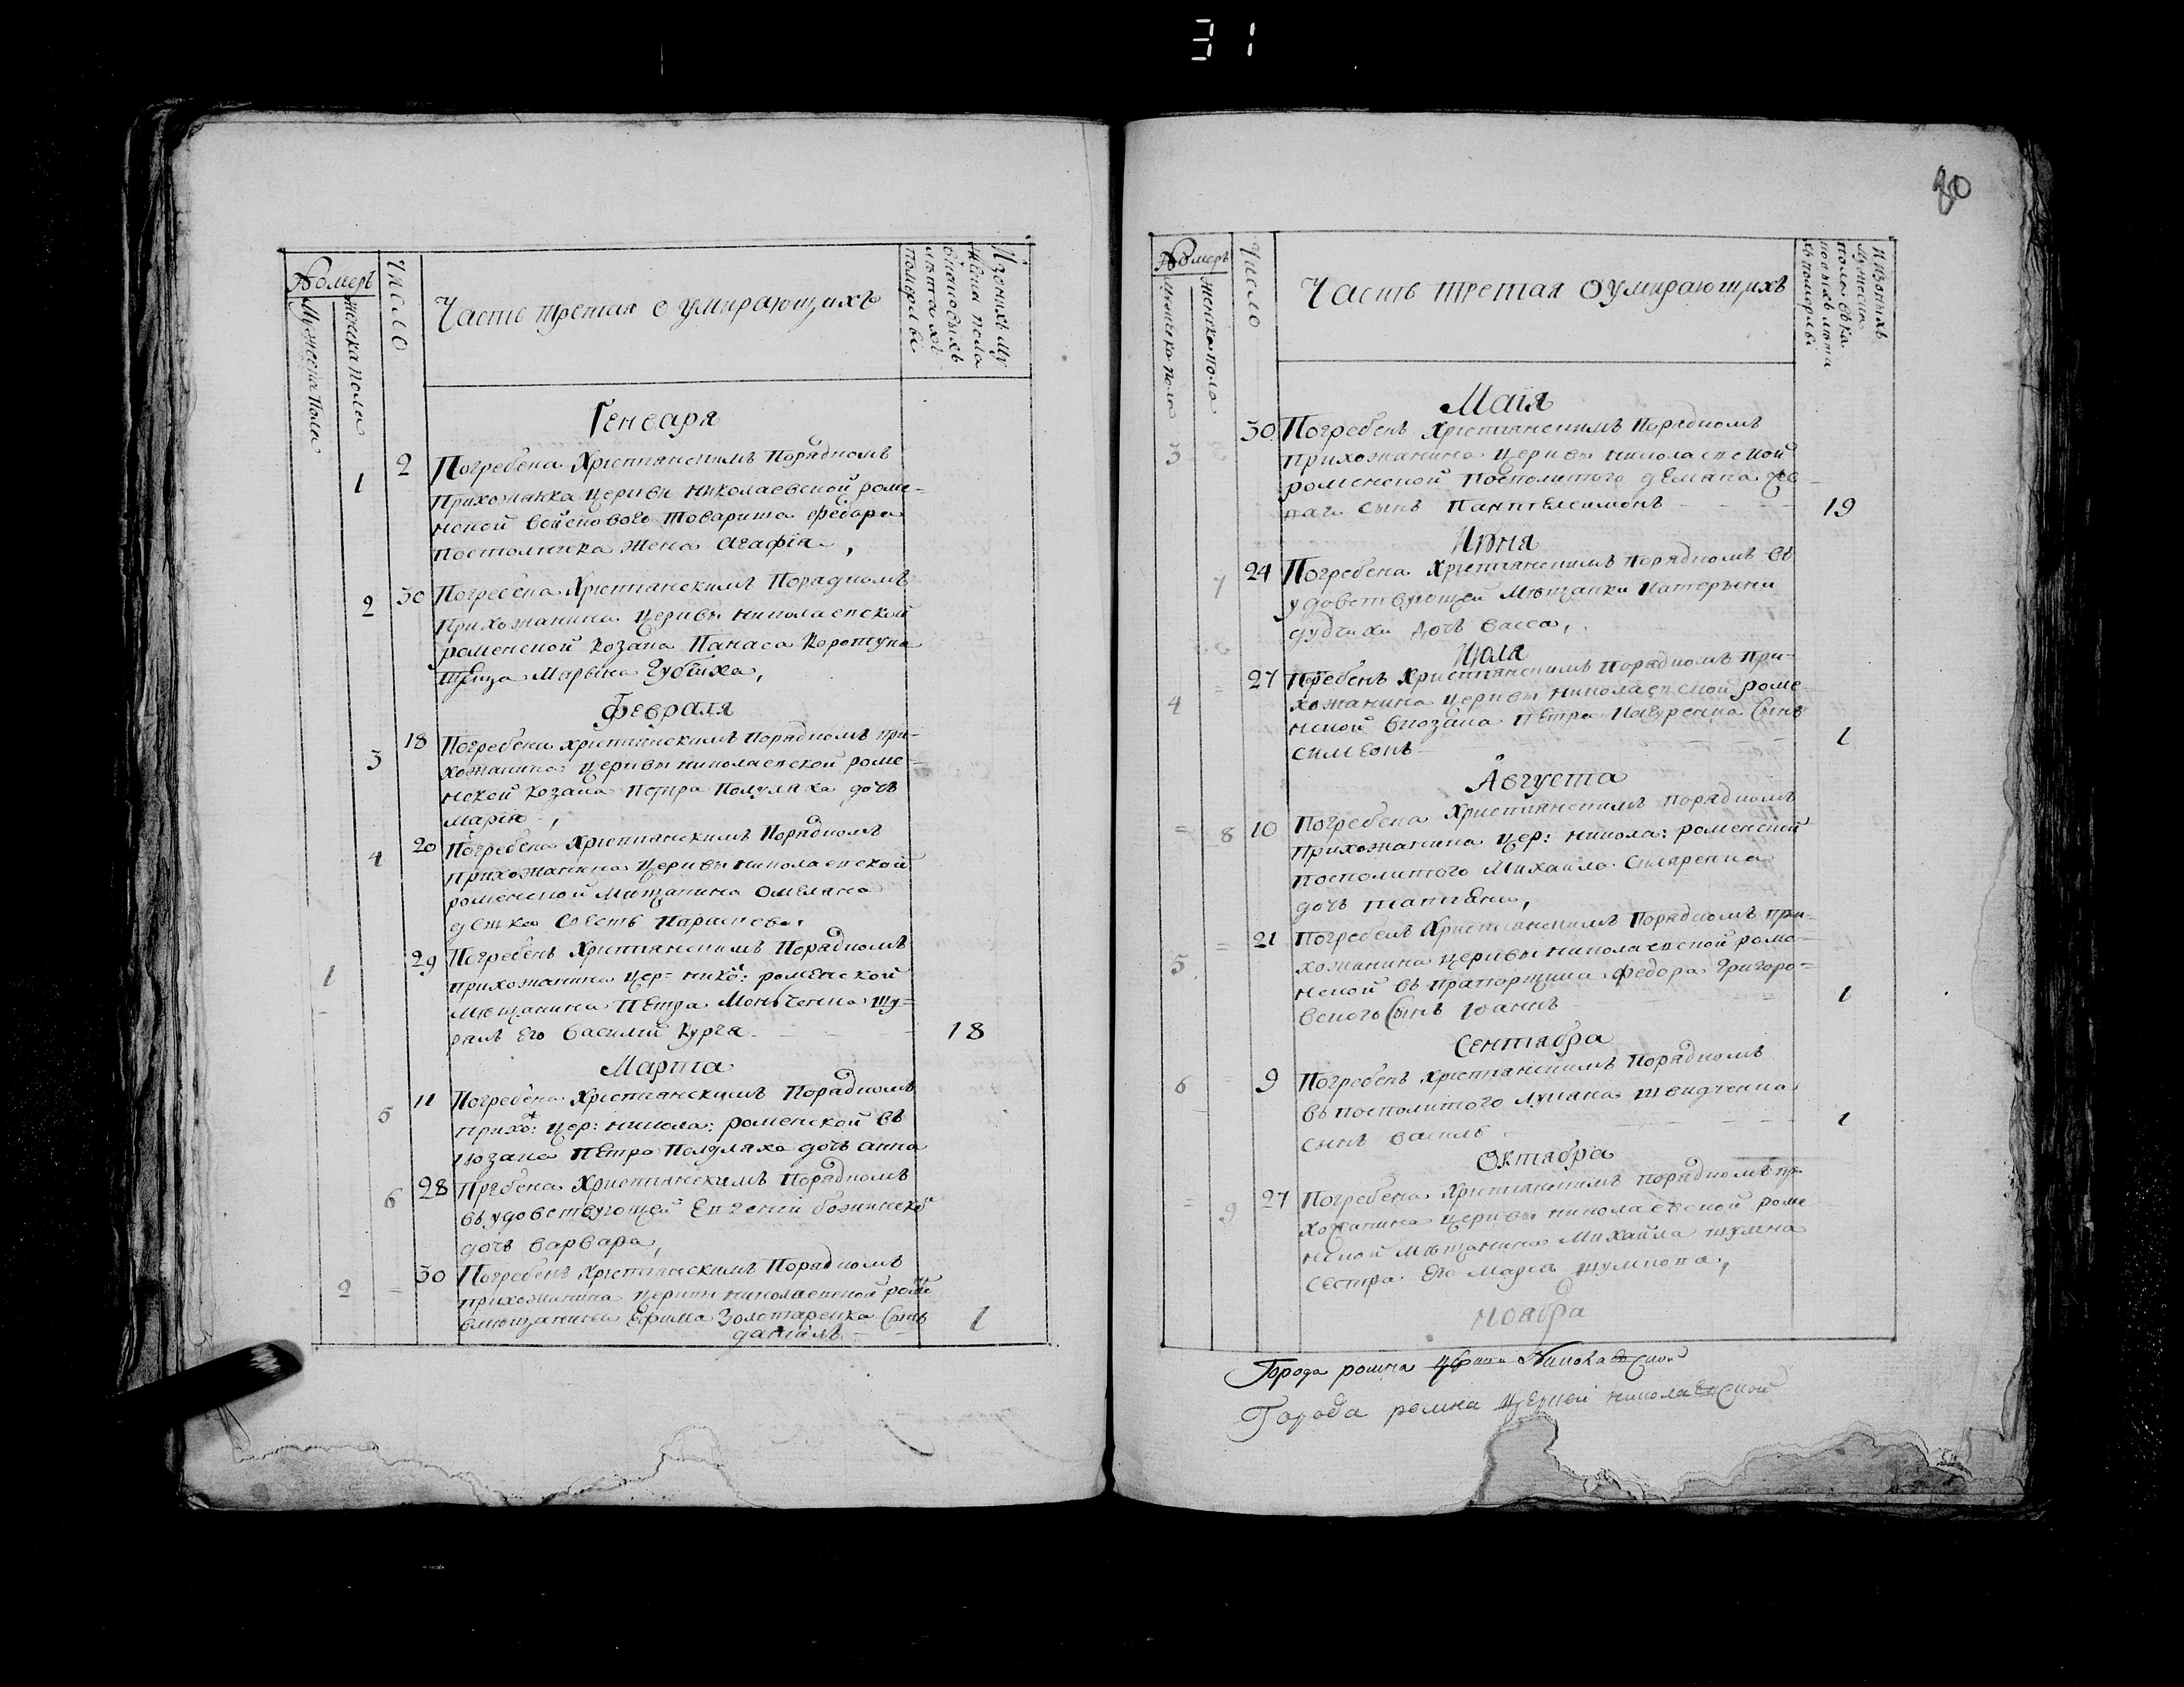 31
Номеръ
Мужеска пола
женска пола
Число
Часть третая о умирающихъ
Генваря
1 2 Погребена Христианскимъ Порядкомъ
Прихожанка церкви николаевской роме-
нской войскового товариша Федора
постолника жена Агафия,
2 30 Погребена Христианскимъ Порядкомъ
прихожанина церкви николаевской
роменской козака Панаса Коротуна
теща Марьяна Губчиха,
Февраля
3 18 Погребена христианскимъ порядкомъ при-
хожанина церкви николаевской роме-
нской козака Петра Полуляха дочь
Мария,
4 20 Погребена Христианскимъ Порядкомъ
прихожанина церкви николаевской
роменской мѣщанина Омеляна
Параскева,
1 29 Погребенъ Христианскимъ Порядкомъ
прихожанина цер: нико: роменской
мѣщанина Петра шу-
ринъ Его Василий Курча 18
Марта
5 11 Погребена Христианскимъ Порядкомъ
прихо: цер: никола: роменской въ
козака Петра Полуляха дочь анна
6 28 Пгребена Христианскимъ Порядкомъ
въ удовствующей
дочь варвара,
2 = 30 Погребенъ Христианскимъ Порядкомъ
прихожанина церкви николаевской роме
вмѣщанина Ефима Золотаренка Сынъ
даниилъ 1
80
Номеръ
Мужеска пола
женска пола
Число
Часть третая о умирающихъ
Маія
3 30 Погребенъ Христианскимъ Порядкомъ
прихожанина церкви николаевской
роменской посполитого демяна
сынъ Пантелеимонъ 19
Июня
7 24 Погребена Христианскимъ Порядкомъ въ
удовствующей Мѣщанки Катерыни
дудчихи дочь васса,
Июля
4 = 27 Пгребенъ Христианскимъ порядкомъ при-
хожанина церкви николаевской роме
нской вкозака Петра Сынъ
Симеонъ 1
Августа
= 8 10 Погребена Христианскимъ порядкомъ
прихожанина цер: никола: роменской
посполитого Михайла Скляренка
дочь татияна,
5 = 21 Погребенъ Христианскимъ Порядкомъ при-
хожанина церкви николаевской роме-
нской въ прапорщика федора Григоро-
вского Сынъ Іоаннъ 1
Сентября
6 = 9 Погребенъ Христианскимъ Порядкомъ
въ посполитого Лукяна швидченка
сынъ василь 1
Октября
= 9 27 Погребена Христианскимъ порядкомъ пр
хожанина церкви николаевской роме
нской мѣщанина Михайла шумка
сестра Его Марфа шумкова,
Ноября
Города ромна церкви Николаевской
Города ромна церкви николаевской